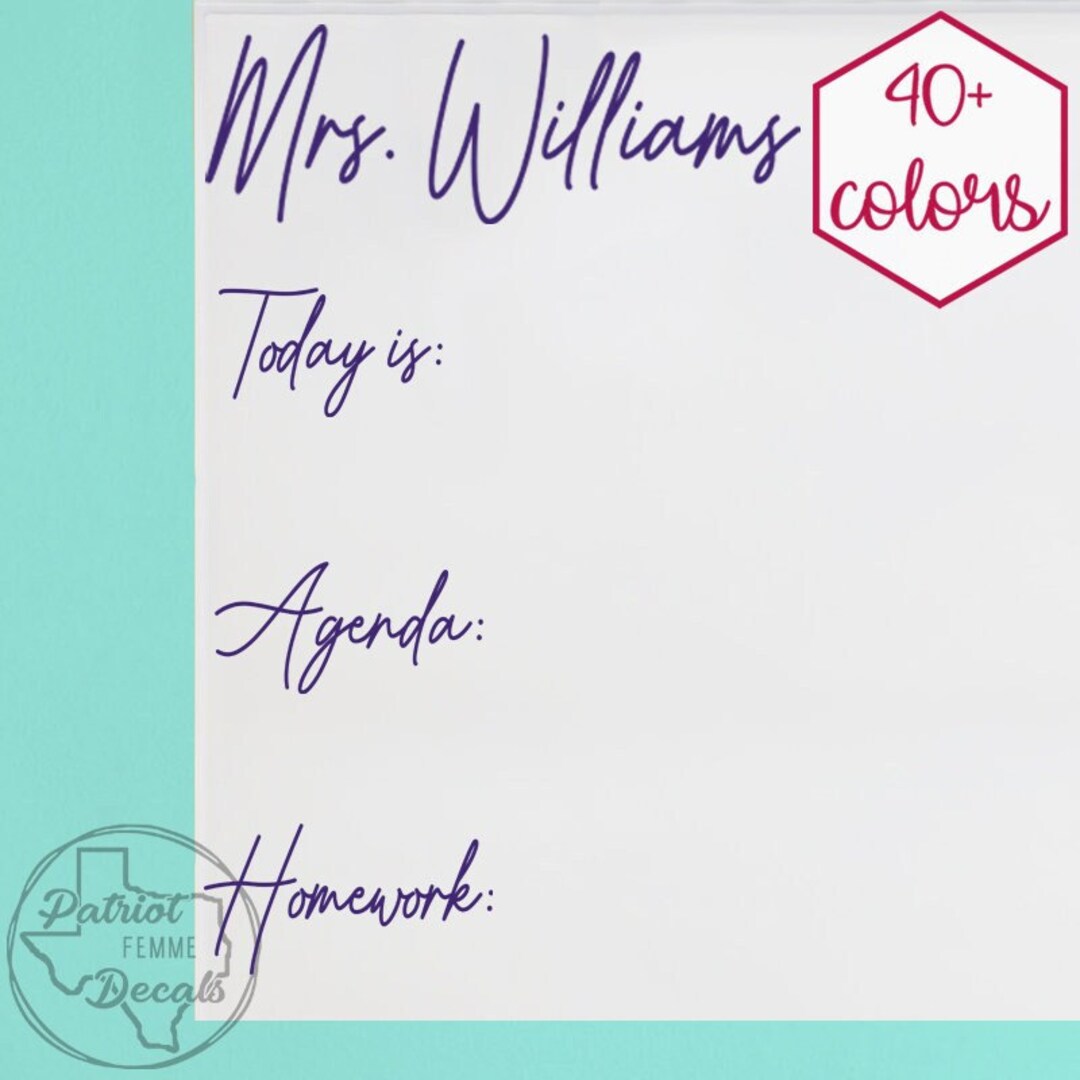 Mrs. Williams
40+
colors
Today is:
Agenda:
Homework:
Patriot
FEMME
Decals